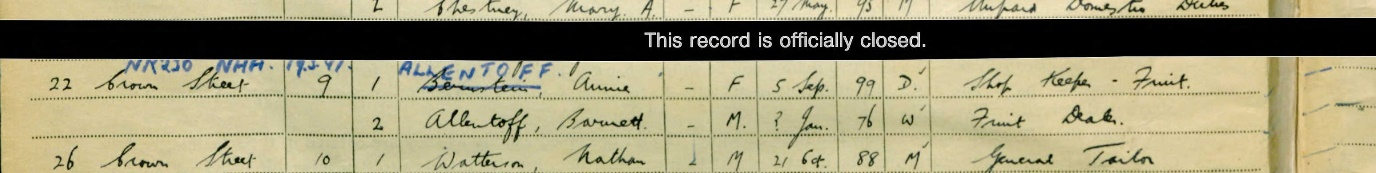 2 Chestney, Mary A. - F 27 May. 95 M Unpaid Domestic Duties
This record is officially closed.
NR230 NHH. 19.5.41. ALLENTOFF.
22 Crown Street 9 1 Bernstein, Annie - F 5 Sep. 99 D. Shop Keeper - Fruit.
2 Allentoff, Barnett. - M. ? Jan. 76 W Fruit Dealer.
26 Crown Street 10 1 Watterson, Nathan 2 M 21 Oct. 88 M General Tailor